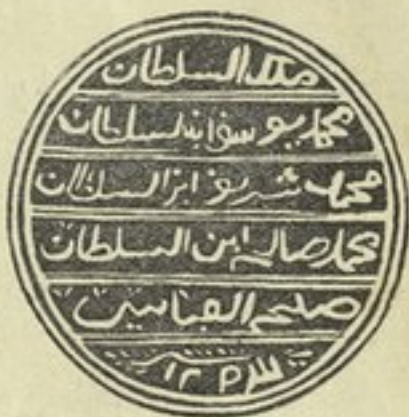 ملك السلطان
محمد يوسف ابن السلطان
محمد شريف ابن السلطان
محمد صالح ابن السلطان
صليح